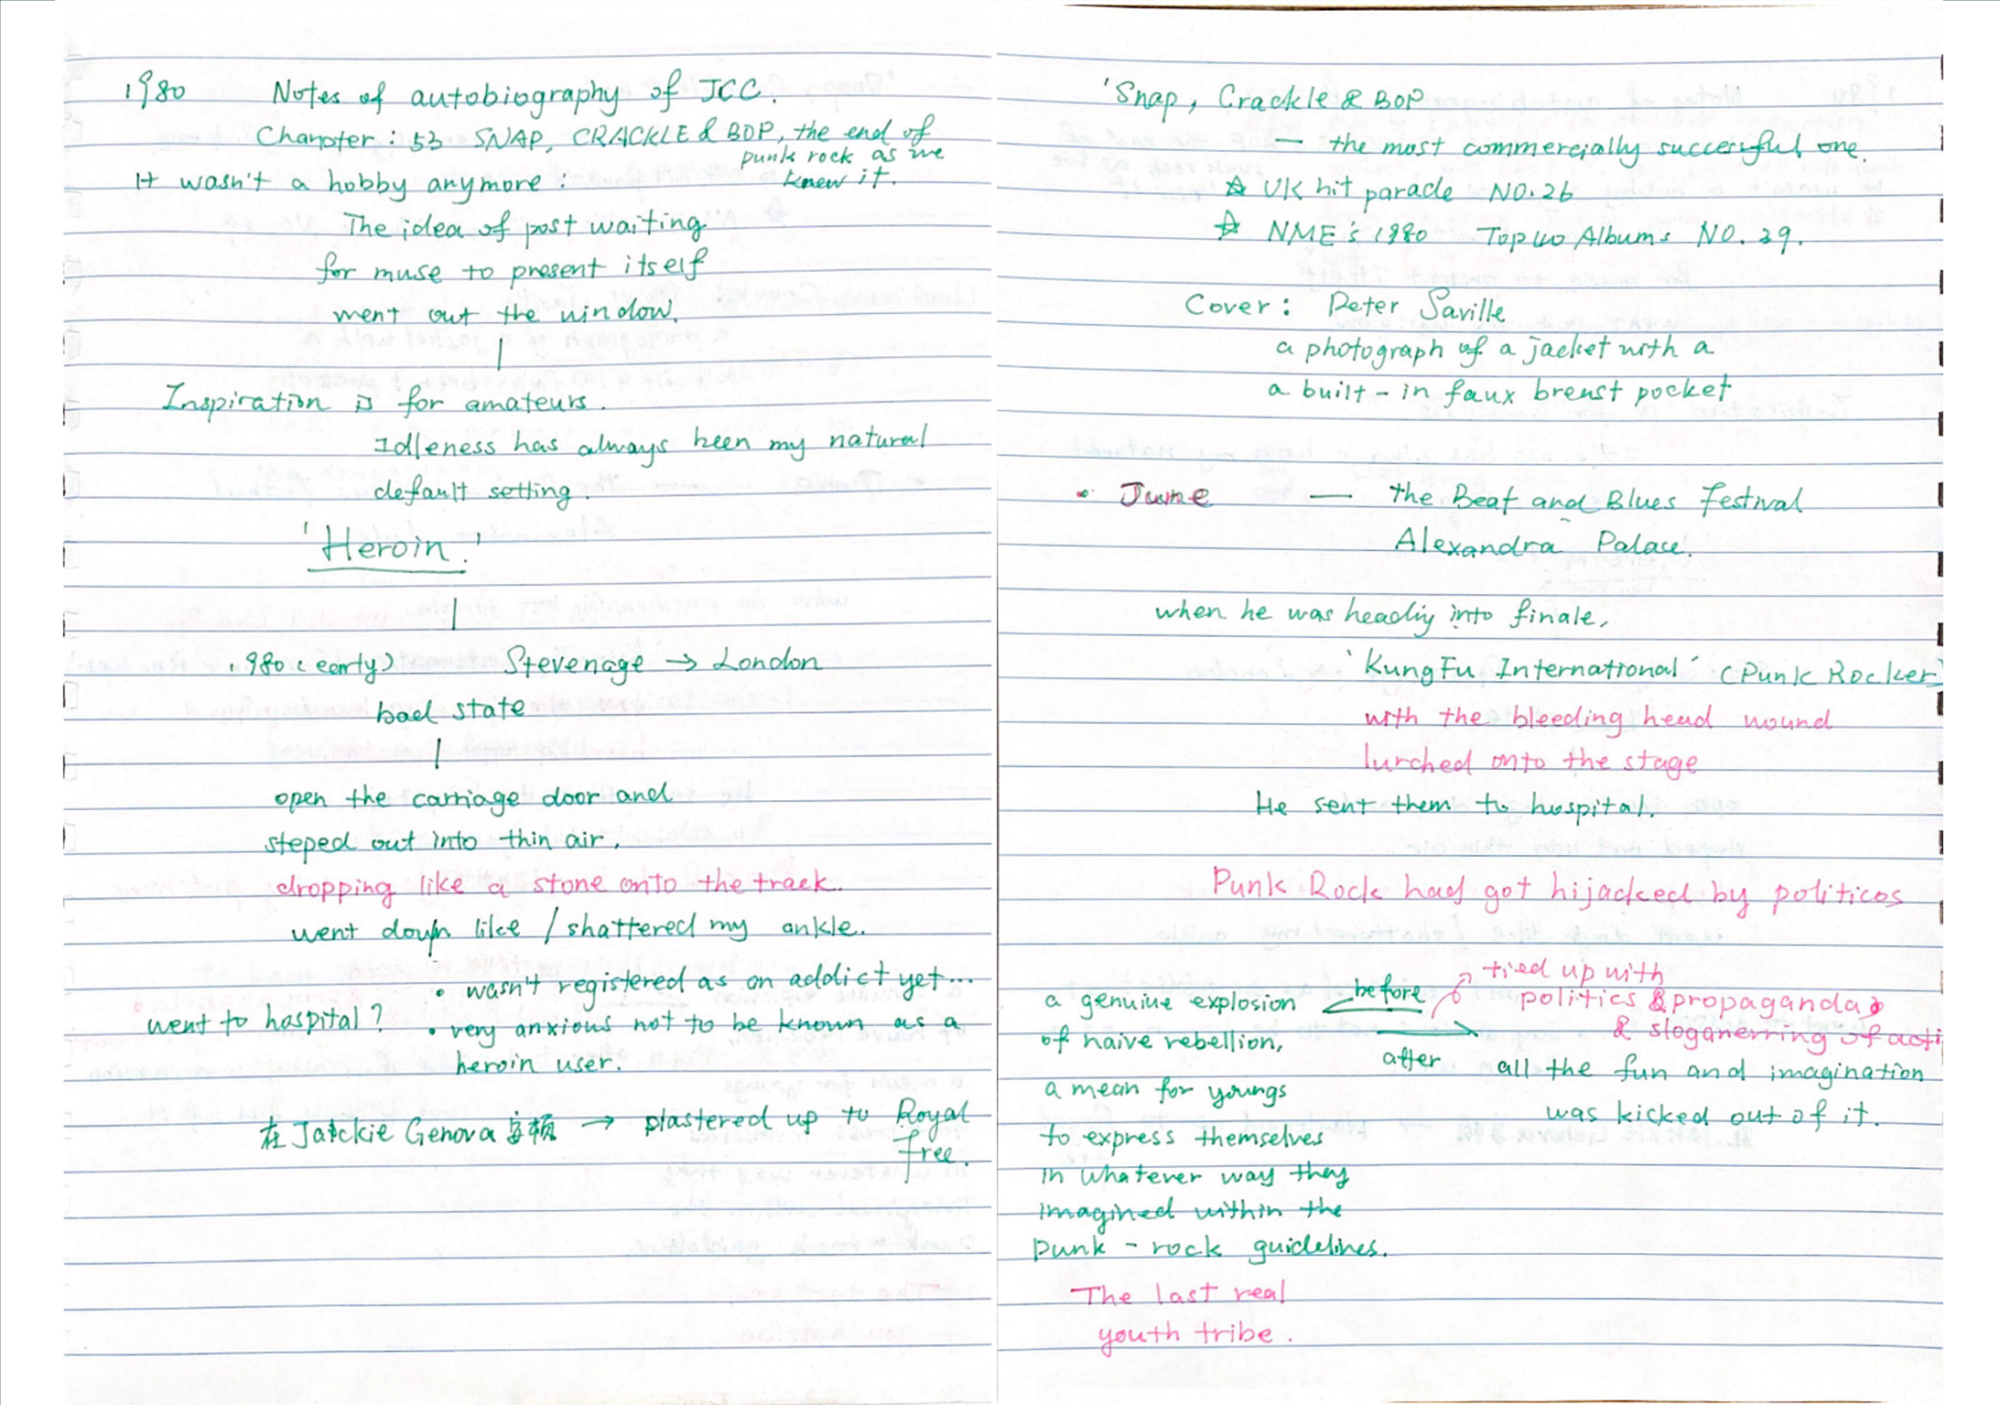 1980 Notes of autobiography of JCC.
Chanpter : 53 SNAP, CRACKLE & BOP, the end of
punk rock as we
knew it.
It wasn't a hobby anymore :
The idea of post waiting
for muse to present itself
went out the window.
Inspiration is for amateurs.
Idleness has always been my natural
default setting.
'Heroin.'
1980 (early) Stevenage → London
bad state
open the carriage door and
steped out into thin air,
dropping like a stone onto the track.
went down like / shattered my ankle.
• wasn't registered as on addict yet...
went to hospital? • very anxious not to be known as a
heroin user.
在 Jackie Genova 安顿 → plastered up to Royal
free.
'Snap, Crackle & BOP
— the most commercially successful one.
☆ UK hit parade NO.26
☆ NME's 1980 Top 40 Albums NO.29.
Cover: Peter Saville
a photograph of a jacket with a
a built-in faux breast pocket
• June — the Beat and Blues Festival
Alexandra Palace.
when he was headiy into finale,
'KungFu International' (Punk Rocker)
with the bleeding head wound
lurched onto the stage
He sent them to hospital.
Punk Rock had got hijacked by politicos
a genuine explosion
of naive rebellion,
a mean for youngs
to express themselves
in whatever way they
imagined within the
punk-rock guidelines.
The last real
youth tribe.
before
after
tied up with
politics & propaganda
& sloganerring of acti
all the fun and imagination
was kicked out of it.